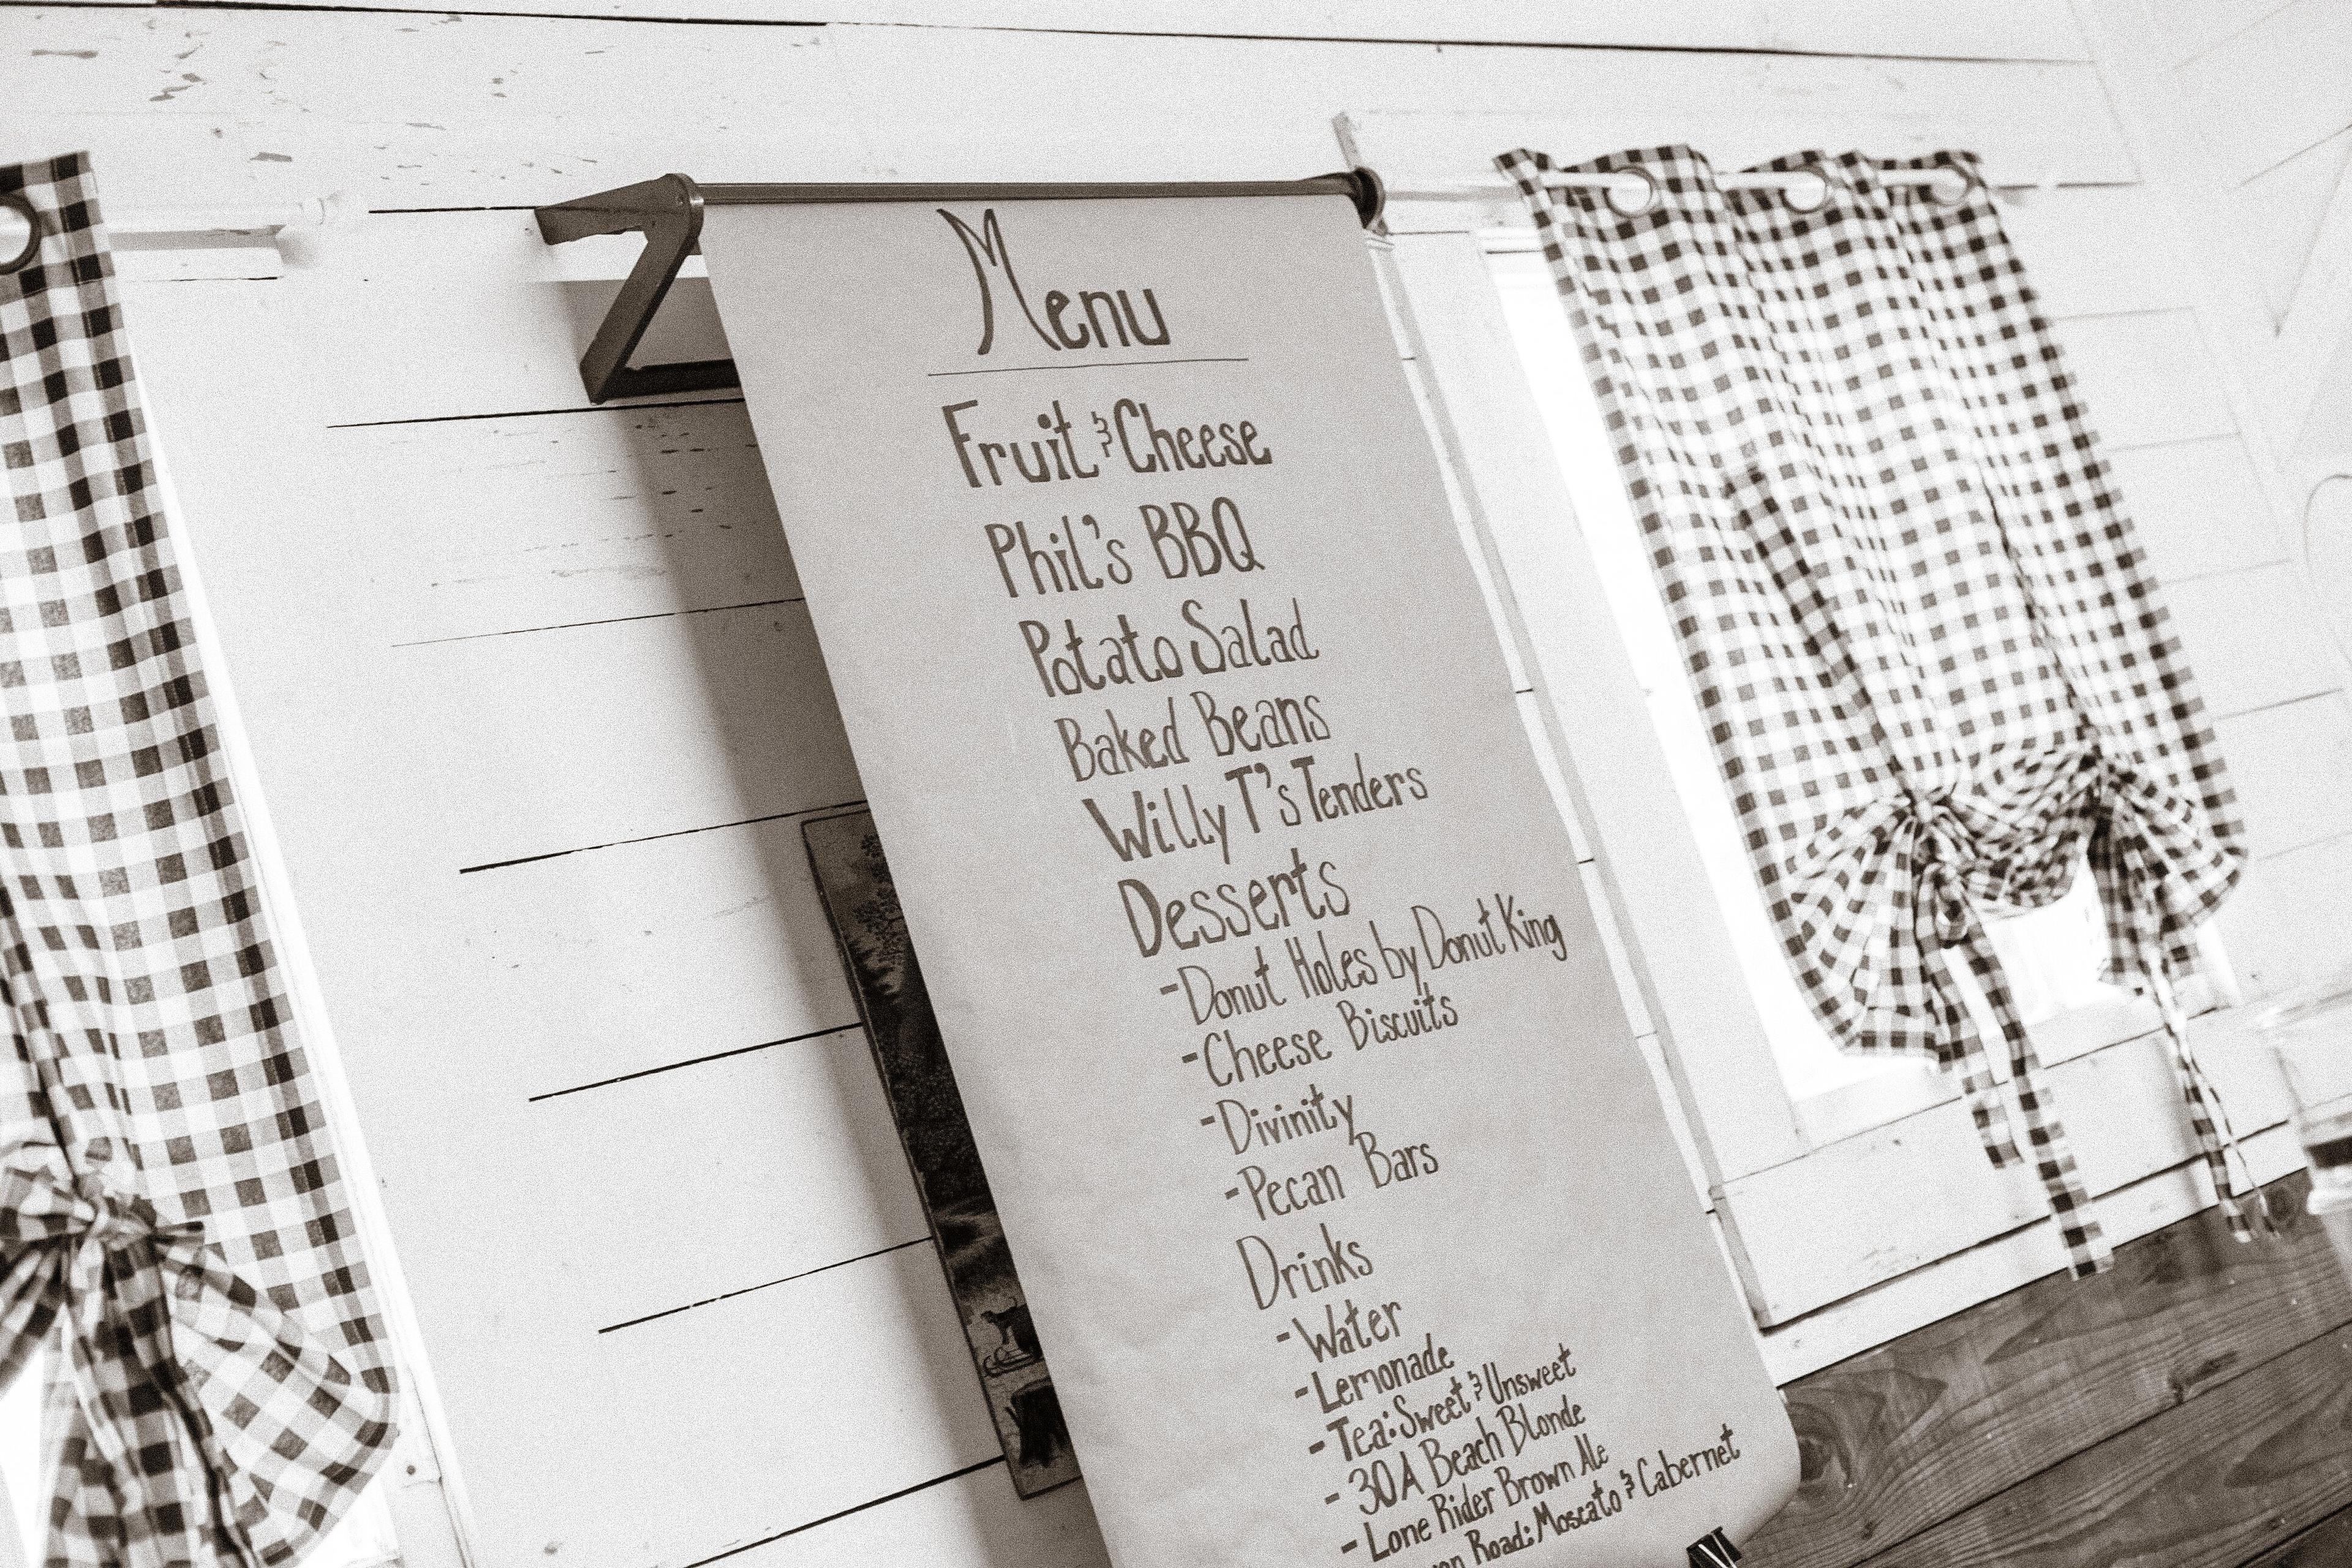 Menu
Fruit & Cheese
Phil's BBQ
Potato Salad
Baked Beans
Willy T's Tenders
Desserts
-Donut Holes by Donut King
-Cheese Biscuits
-Divinity
-Pecan Bars
Drinks
-Water
-Lemonade
-Tea: Sweet & Unsweet
-30A Beach Blonde
-Lone Rider Brown Ale
Road: Moscato & Cabernet